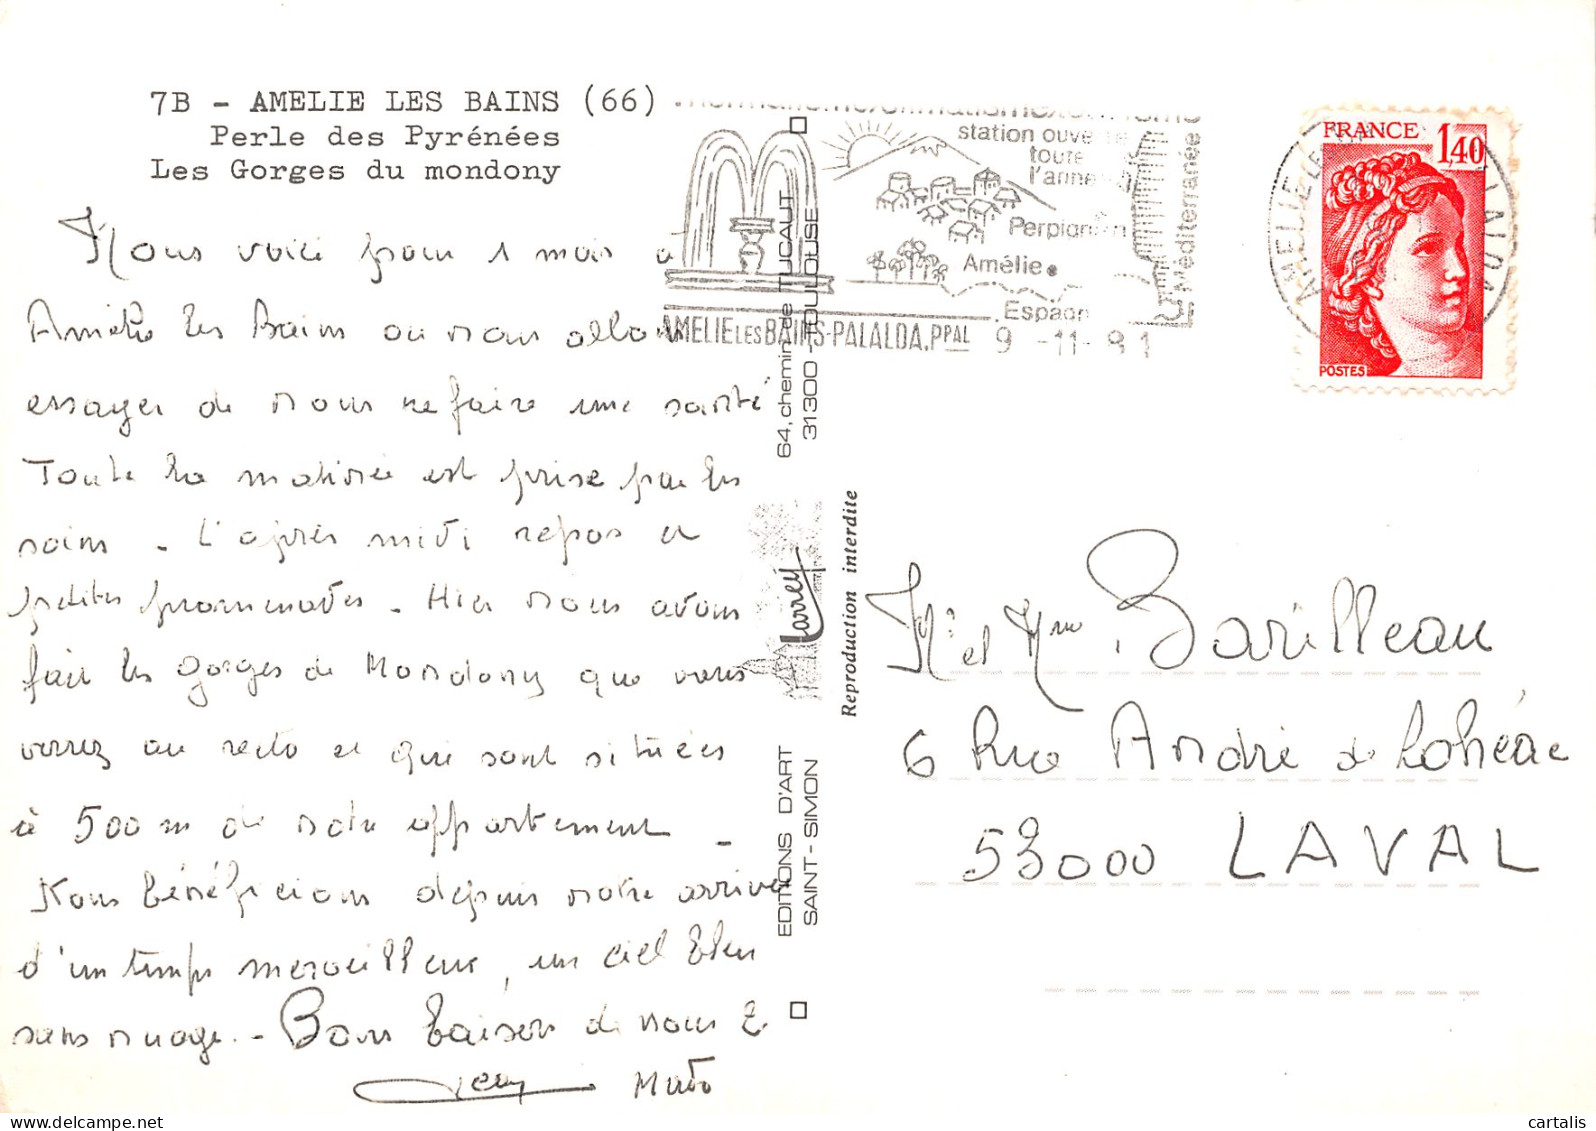 7B - AMELIE LES BAINS (66)
Perle des Pyrénées
Les Gorges du mondony
Nous voici pour 1 mois à
Amélie les Bains ou nous allons
essayer de nous refaire une santé
Toute la matinée est prise par les
soins - L'après midi repos et
petites promenades - Hier nous avons
fait les gorges de Mondony que vous
verrez au recto et qui sont situées
à 500 m de notre appartement -
Nous bénéficions depuis notre arrivée
d'un temps merveilleux, un ciel bleu
sans nuage. - Bons baisers de nous 2.
station ouverte
toute
l'année
Perpignan
Amélie
Espagne
Méditerranée
AMELIE LES BAINS-PALALDA.PPAL 9 -11- 81
FRANCE 1,40
POSTES
EDITIONS D'ART Larrey 64, chemin de TUCAUT
SAINT-SIMON 31300 - TOULOUSE
Reproduction interdite
Mr et Mme Barilleau
6 Rue André de Lohéac
53000 LAVAL
cartalis
www.delcampe.net